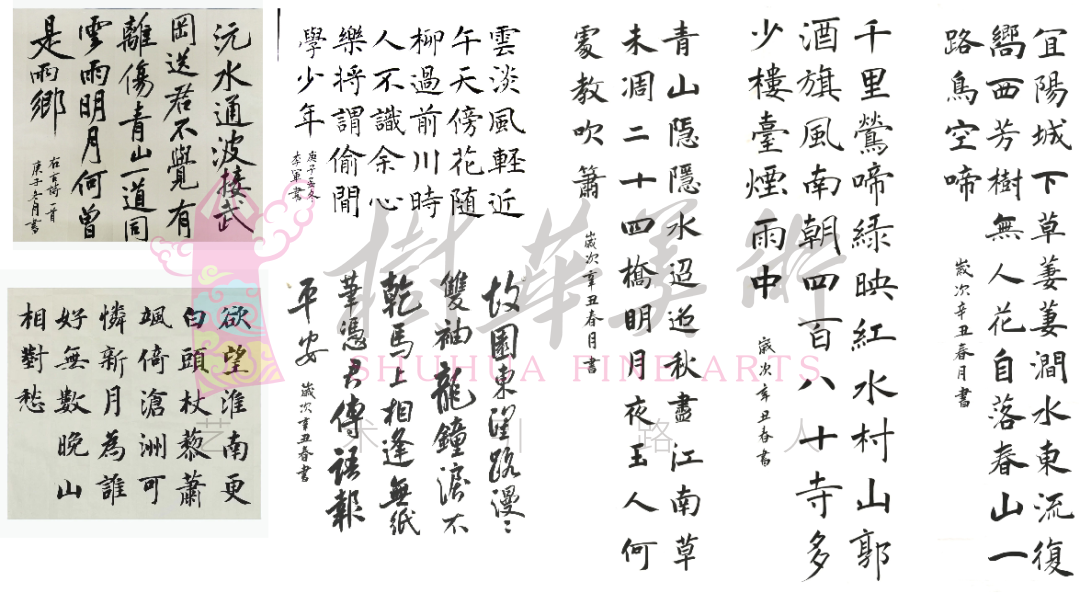 宜陽城下草萋萋澗水東流復
嚮西芳樹無人花自落春山一
路鳥空啼
歲次辛丑春月書
千里鶯啼緑映紅水村山郭
酒旗風南朝四百八十寺多
少樓臺煙雨中
歲次辛丑春書
青山隱隱水迢迢秋盡江南草
未凋二十四橋明月夜玉人何
處教吹簫
歲次辛丑春月書
雲淡風輕近
午天傍花隨
柳過前川時
人不識余心
樂將謂偷閒
學少年
庚子孟冬
李軍書
故園東望路漫〻
雙袖龍鐘淚不
乾馬上相逢無紙
筆憑君傳語報
平安
歲次辛丑春書
沅水通波接武
岡送君不覺有
離傷青山一道同
雲雨明月何曾
是雨鄉
詩一首
庚子冬月書
欲望淮南更
白頭杖藜蕭
颯倚滄洲可
憐新月為誰
好無數晚山
相對愁
樹華美術
SHUHUA FINE ARTS
艺术引路人